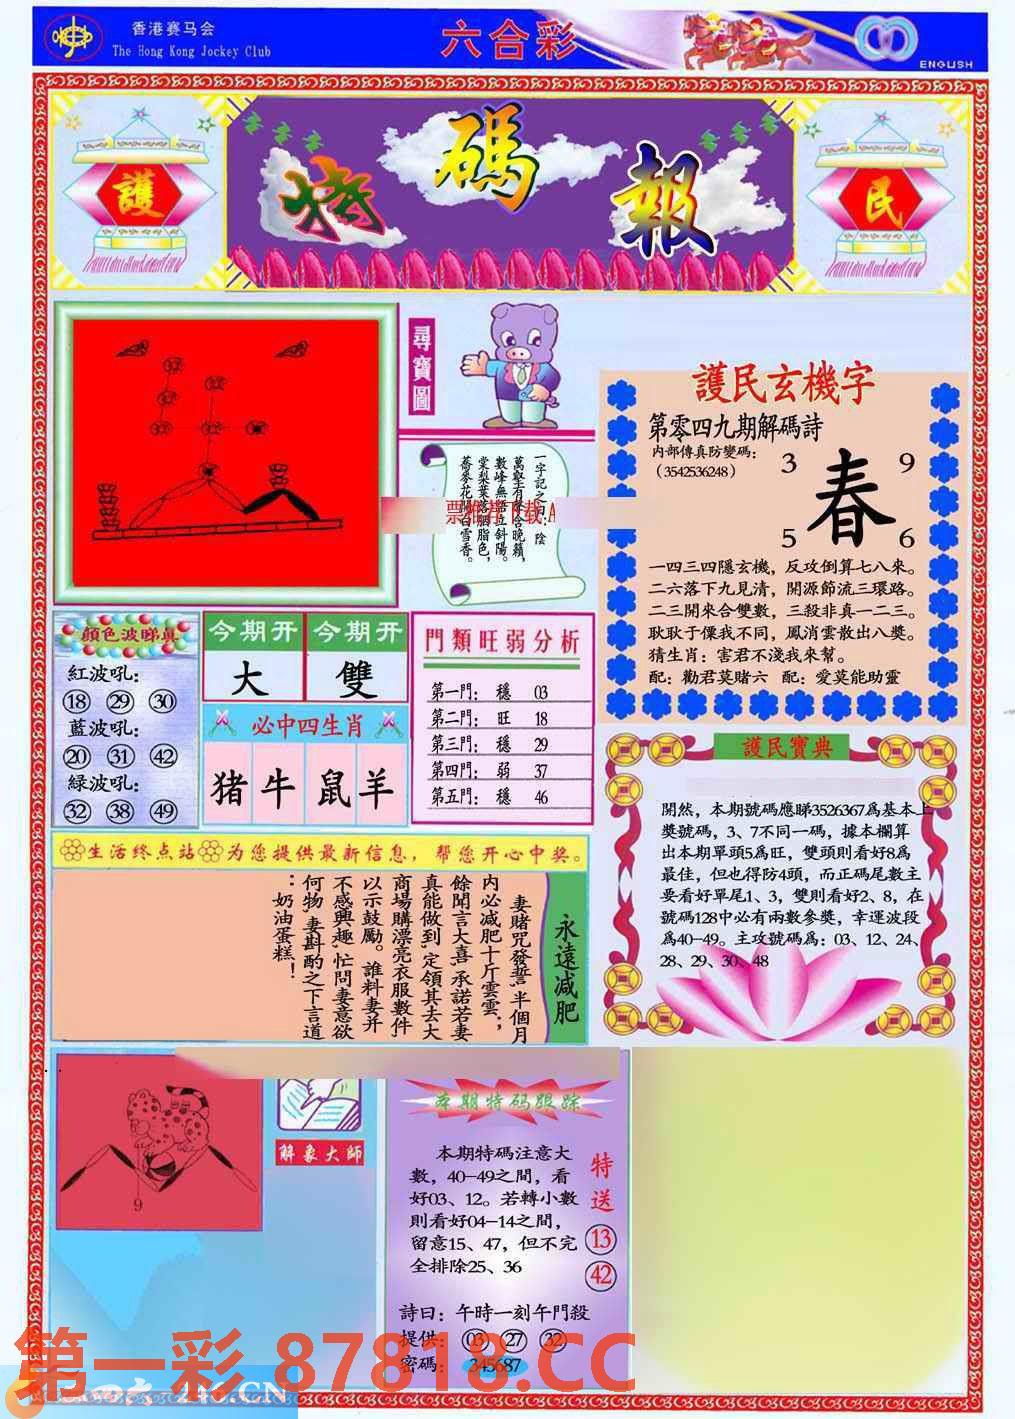 香港赛马会
The Hong Kong Jockey Club
六合彩
ENGLISH
護
特碼報
民
尋寶圖
一字記之曰：陰
萬壑有聲含晚籟，
數峰無語立斜陽。
棠梨葉落胭脂色，
蕎麥花開白雪香。
票推荐下载A
護民玄機字
第零四九期解碼詩
内部傳真防變碼：
（3542536248）
3 9
春
5 6
一四三四隱玄機，反攻倒算七八來。
二六落下九見清，開源節流三環路。
二三開來合雙數，三殺非真一二三。
耿耿于懷我不同，鳳消雲散出八獎。
猜生肖：害君不淺我來幫。
配：勸君莫賭六 配：愛莫能助靈
顔色波睇真
紅波吼：
18 29 30
藍波吼：
20 31 42
緑波吼：
32 38 49
今期开 今期开
大 雙
必中四生肖
猪 牛 鼠 羊
門類旺弱分析
第一門： 穩 03
第二門： 旺 18
第三門： 穩 29
第四門： 弱 37
第五門： 穩 46
護民寶典
開然，本期號碼應睇3526367爲基本上
獎號碼，3、7不同一碼，據本欄算
出本期單頭5爲旺，雙頭則看好8爲
最佳，但也得防4頭，而正碼尾數主
要看好單尾1、3，雙則看好2、8，在
號碼128中必有兩數參獎，幸運波段
爲40-49。主攻號碼爲：03、12、24、
28、29、30、48
生活终点站 为您提供最新信息，帮您开心中奖。
永遠减肥
妻賭咒發誓，半個月
内必减肥十斤雲雲；
餘聞言大喜，承諾若妻
真能做到，定領其去大
商場購漂亮衣服數件
以示鼓勵。誰料妻并
不感興趣，忙問妻意欲
何物，妻斟酌之下言道
：奶油蛋糕！
9
解象大師
本期特码跟踪
本期特碼注意大
數，40-49之間，看
好03、12。若轉小數
則看好04-14之間，
留意15、47，但不完
全排除25、36
特送
13
42
詩曰：午時一刻午門殺
提供：03 27 32
密碼：345687
第一彩 87818.CC